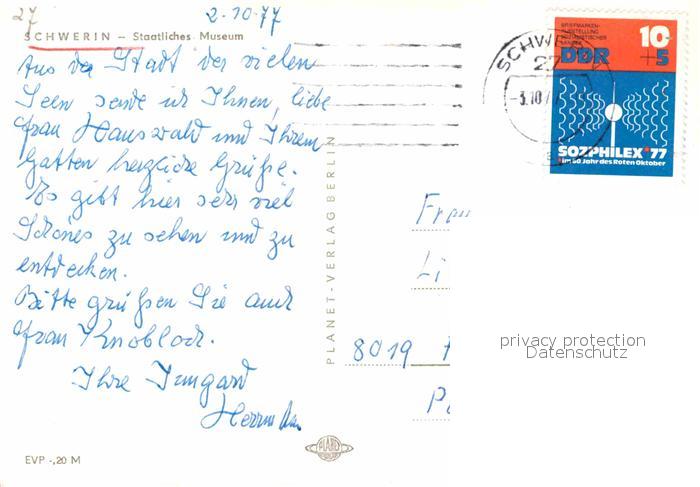 27
2-10-77
SCHWERIN – Staatliches Museum
Aus der Stadt der vielen
Seen sende ich Ihnen, liebe
Frau Hauswald und Ihrem
Gatten herzliche Grüße.
Es gibt hier sehr viel
Schönes zu sehen und zu
entdecken.
Bitte grüßen Sie auch
Frau Knobloch.
Ihre Irmgard
EVP -,20 M
PLANET-VERLAG BERLIN
SCHWERIN
27
-3.10.7
BRIEFMARKEN-
AUSSTELLUNG
SOZIALISTISCHER
LÄNDER
DDR
10
+5
SOZPHILEX '77
Im 60. Jahr des Roten Oktober
Frau
Li
8019
privacy protection
Datenschutz